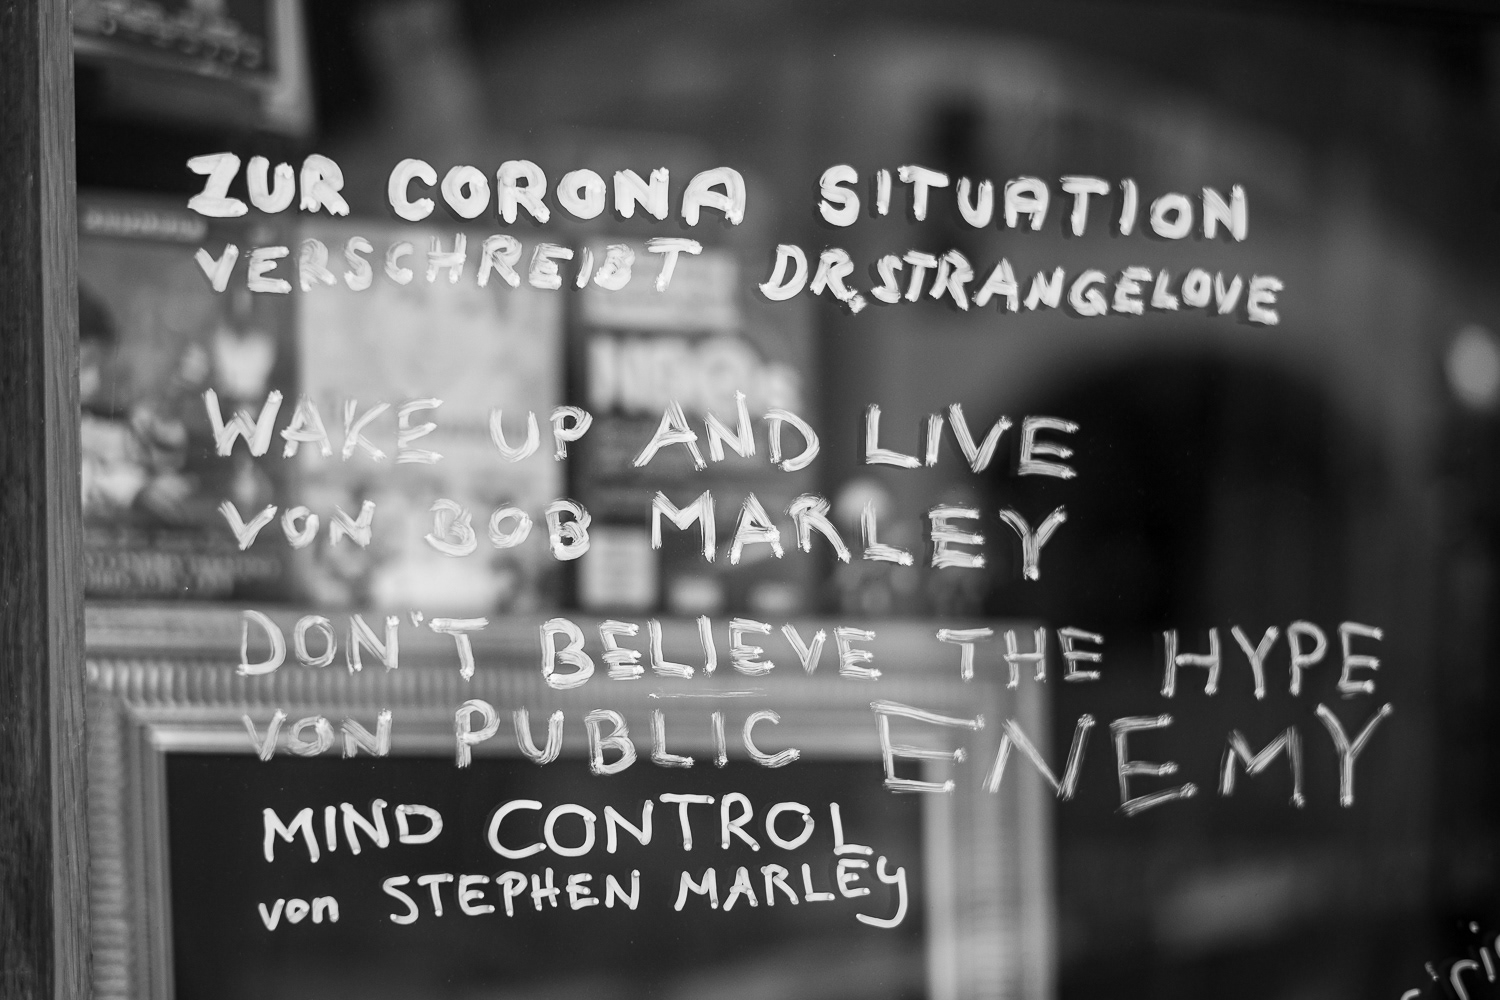 ZUR CORONA SITUATION
VERSCHREIBT DR. STRANGELOVE
WAKE UP AND LIVE
VON BOB MARLEY
DON'T BELIEVE THE HYPE
VON PUBLIC ENEMY
MIND CONTROL
von STEPHEN MARLEY